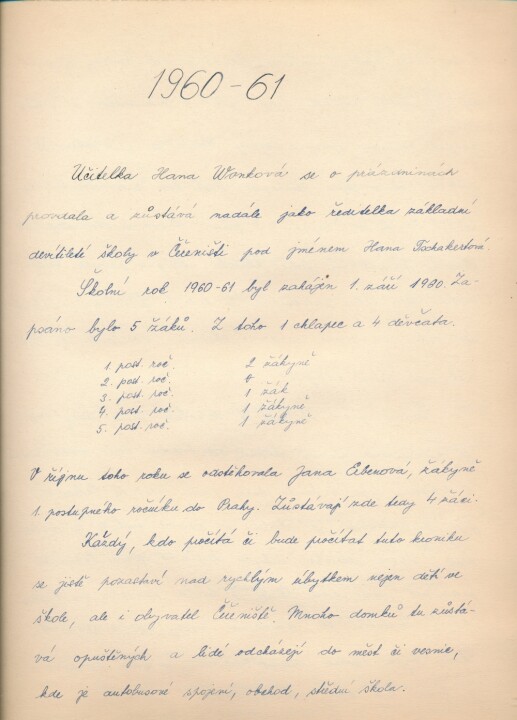 1960-61
Učitelka Hana Wonková se o prázdninách
provdala a zůstává nadále jako ředitelka základní
devítileté školy v Čeeništi pod jménem Hana Tschakertová
Školní rok 1960-61 byl zahájen 1. září 1960. Za-
psáno bylo 5 žáků. Z toho 1 chlapec a 4 děvčata.
1. post. roč. 2 žákyně
2. post. roč. 0
3. post. roč. 1 žák
4. post. roč. 1 žákyně
5. post. roč. 1 žákyně
V říjnu toho roku se odstěhovala Jana Erbenová, žákyně
1. postupného ročníku do Prahy. Zůstávají zde tedy 4 žáci.
Každý, kdo počítá či bude počítat tuto kroniku
se jistě pozastaví nad rychlým úbytkem nejen dětí ve
škole, ale i obyvatel Čeeniště. Mnoho domků tu zůstá-
vá opuštěných a lidé odcházejí do měst či vesnic,
kde je autobusové spojení, obchod, střední škola.